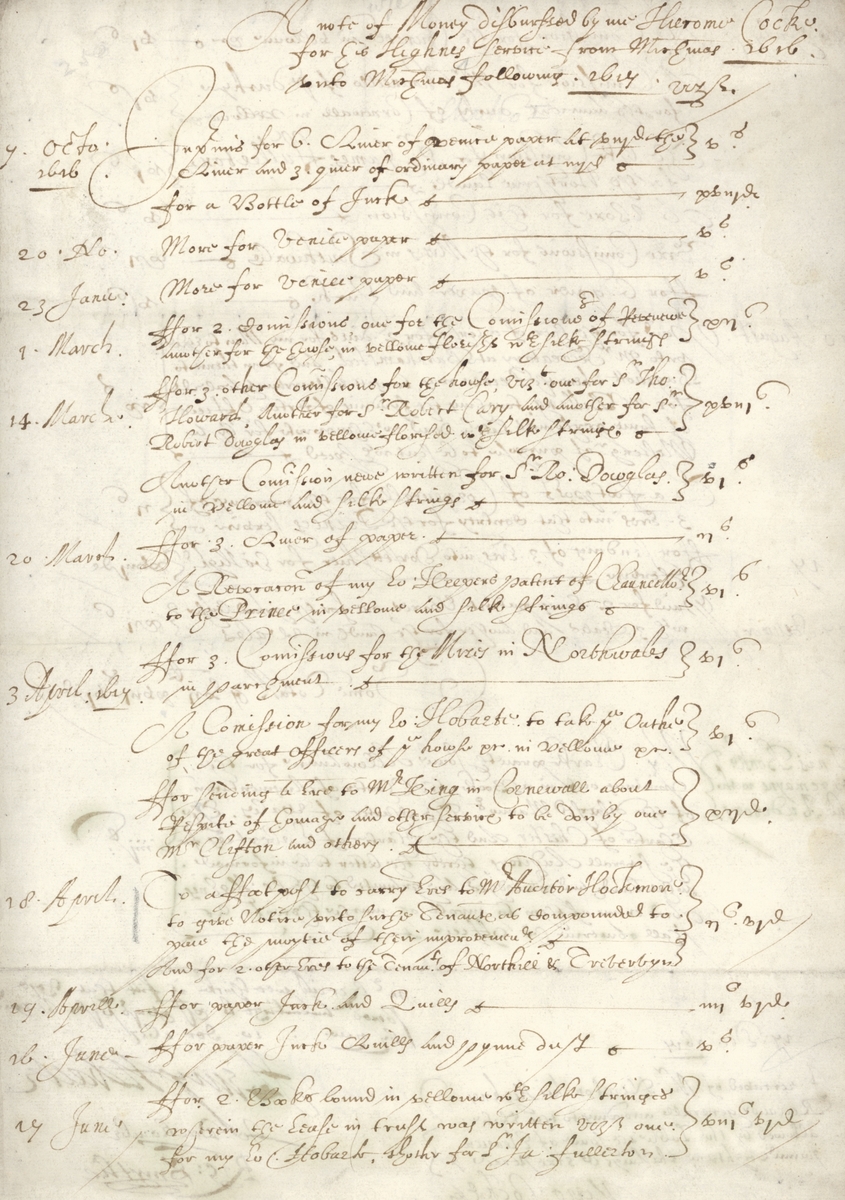 A note of Money disbursed by me Hierome Cocke
for his Highnes service from Michmas . 1616 .
unto Michmas following . 1617 . vizt.
7. Octo: Inprimis for 6. Quier of venice paper at viijd the
1616 Quier and 3 quier of ordinary paper at iiijd vs
for a Bottle of Inck xviijd
20 . No. More for venice paper vs
23 Janu: More for venice paper vs
1. March. ffor 2. Comissions one for the Comissioners of Revenewe
Another for the howse, in vellome florisht wth silke strings xijs
ffor 3. other Comissions for the howse, vizt one for Sr Tho:
14. March. Howard, Another for Sr Robert Cary and another for Sr xviijs
Robert Dowglas in vellome florished wth silke strings
Another Comission newe written for Sr Ro. Dowglas. vis
in vellome and silke strings
20 March. ffor .3. Quier of paper. ijs
A of my Lo: Keepers patent of Chauncellor vis
to the Prince in vellome and silke strings
ffor 3. Comissions for the Mizes in Northwales vis
3 April. 1617. in parchment
A Comission for my Lo: Hobarte to take ye Oathe vis
of the great Officers of ye howse &c. in vellome &c.
ffor sending a lre to Mr King in Cornewall about
Respite of homage and other service to be don by one xijd
Mr Clifton and others
18. April. To a ffoot post to carry lres to Mr Auditor Hockmore
to give Notice unto suche Tenants as compounded to
paie the moytie of their improvements ijs vjd
And for 2. other lres to the Tenants of Northill & Treverbyn
19. Aprill. ffor paper Inck and Quills iiijs vjd
16. June ffor paper Incke Quills and pynne dust vs
17 June ffor 2. Books bound in vellome wth silke stringes
wherein the Lease in trust was written vizt one viis vjd
for my Lo: Hobarte, thother for Sr Ja: fullerton